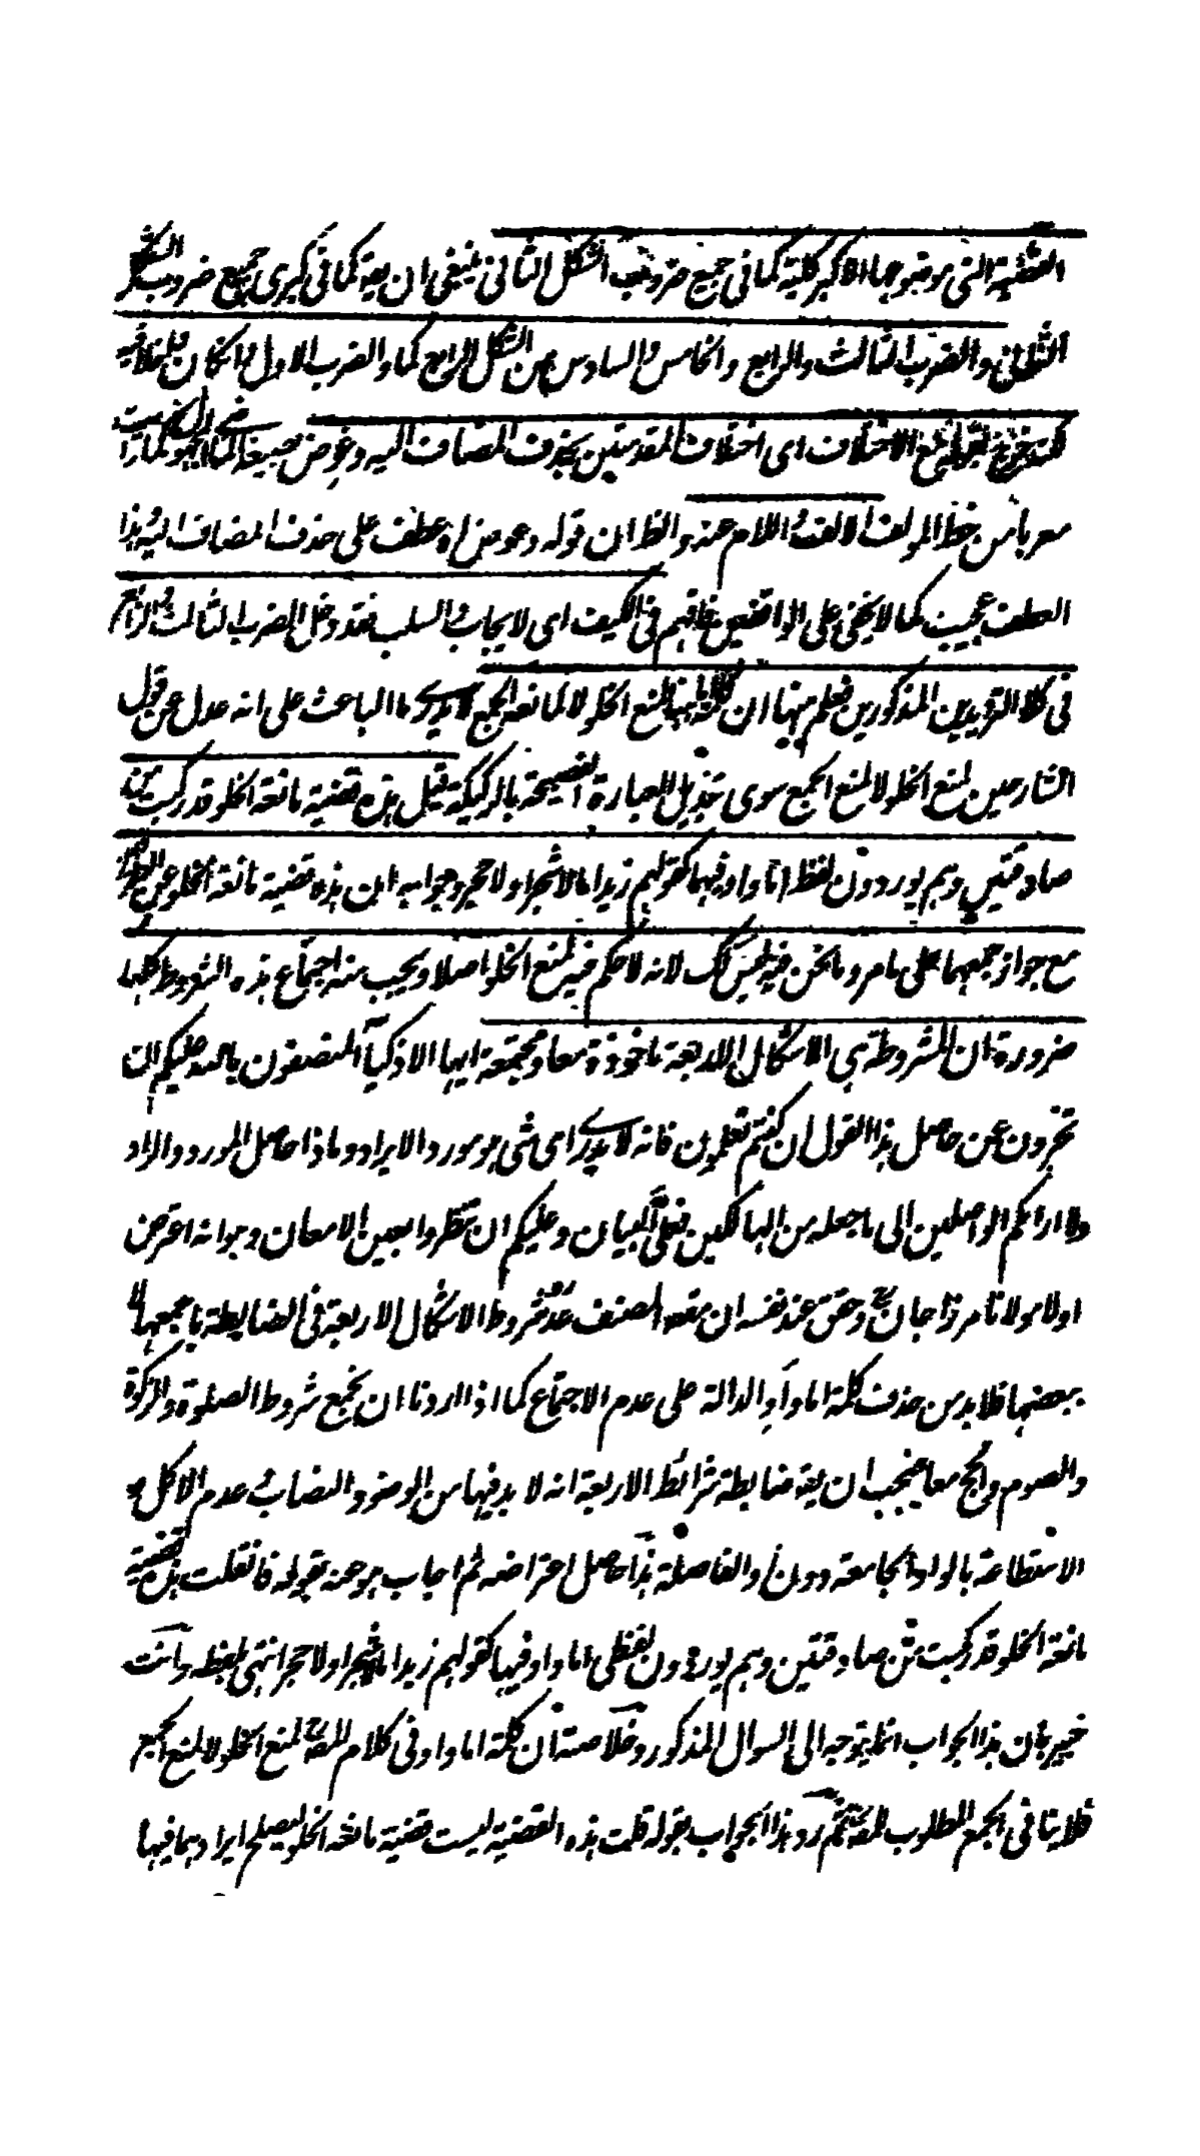 القضية التى موضوعها الاكبر كلية كما فى جميع ضروب الشكل الثانى ينبغى ان يقة كما فى كبرى جميع ضروب الشكل
الثانى والضرب الثالث والرابع والخامس والسادس من الشكل الرابع كما والضرب الاول
مع الاختلاف اى اختلاف المقدمتين بحذف المضاف اليه وعوض
معربا من خط المولف الالف واللام عنه والظ ان قوله وعوض اه عطف على حذف المضاف اليه وهذا
العطف عجيب كما لا يخفى على الواقفين فافهم فى الكيف اى لايجاب والسلب فقد دخل الضرب الثالث والرابع
فى كلا الترديدين المذكورين فعلم منها ان كلمة لمنع الخلو لا لمانعة الجمع لا يدرى ما الباعث على انه عدل عن قول
الشارحين لمنع الخلو لا لمنع الجمع سوى تبذيل العبارة الفصيحة بالركيكة قيل هذه قضية مانعة الخلو قد ركبت من
صادقتين وهم يوردون لفظ اما واو فيها كقولهم زيد اما لا شجر او لا حجر وجوابه ان هذه قضية مانعة الخلو
مع جواز جمعهما على ما مر وما نحن فيه ليس كك لانه لا حكم فيه لمنع الخلو اصلا ويجيب منه اجتماع هذه الشروط كلها
ضرورة ان المشروطة هى الاشكال الاربعة ماخوذة معا ومجتمعة ايها الاذكيآ المنصفون بالله عليكم ان
تخبرون عن حاصل هذا القول ان كنتم تعلمون فانه لا يدرى اى شى هو مورد الايراد وماذا حاصل المورد والراد
ولا اراكم الواصلين الى ما جعله من الهالكين فعلىّ البيان وعليكم ان تنظروا بعين الامعان وهو انه اعترض
اولا مولانا مرزا جان رح وحقق عند نفسه ان مقصد المصنف عدّ شروط الاشكال الاربعة فى الضابطة باجمعها لا
ببعضها فلا بد من حذف كلمة اما وأو الدالة على عدم الاجتماع كما اذا اردنا ان نجمع شروط الصلوة والزكوة
والصوم والحج معا فيجب ان يقة ضابطة شرائط الاربعة انه لا بد فيها من الوضو والنصاب وعدم الاكل و
الاستطاعة بالواو الجامعة دون او الفاصلة هذا حاصل اعتراضه ثم اجاب هو عنه بقوله فانقلت هذه قضية
مانعة الخلو قد ركبت من صادقتين وهم يوردون لفظى اما واو فيها كقولهم زيد اما لا شجر او لا حجر انتهى بلفظه وانت
خبير بان هذا الجواب انما يتوجه الى السوال المذكور وخلاصته ان كلمة اما واو فى كلام المص لمنع الخلو لا لمنع الجمع
فلا ينافى الجمع المطلوب للمص ثم رد هذا الجواب بقوله قلت هذه القضية ليست قضية مانعة الخلو ليصلح ايرادهما فيها